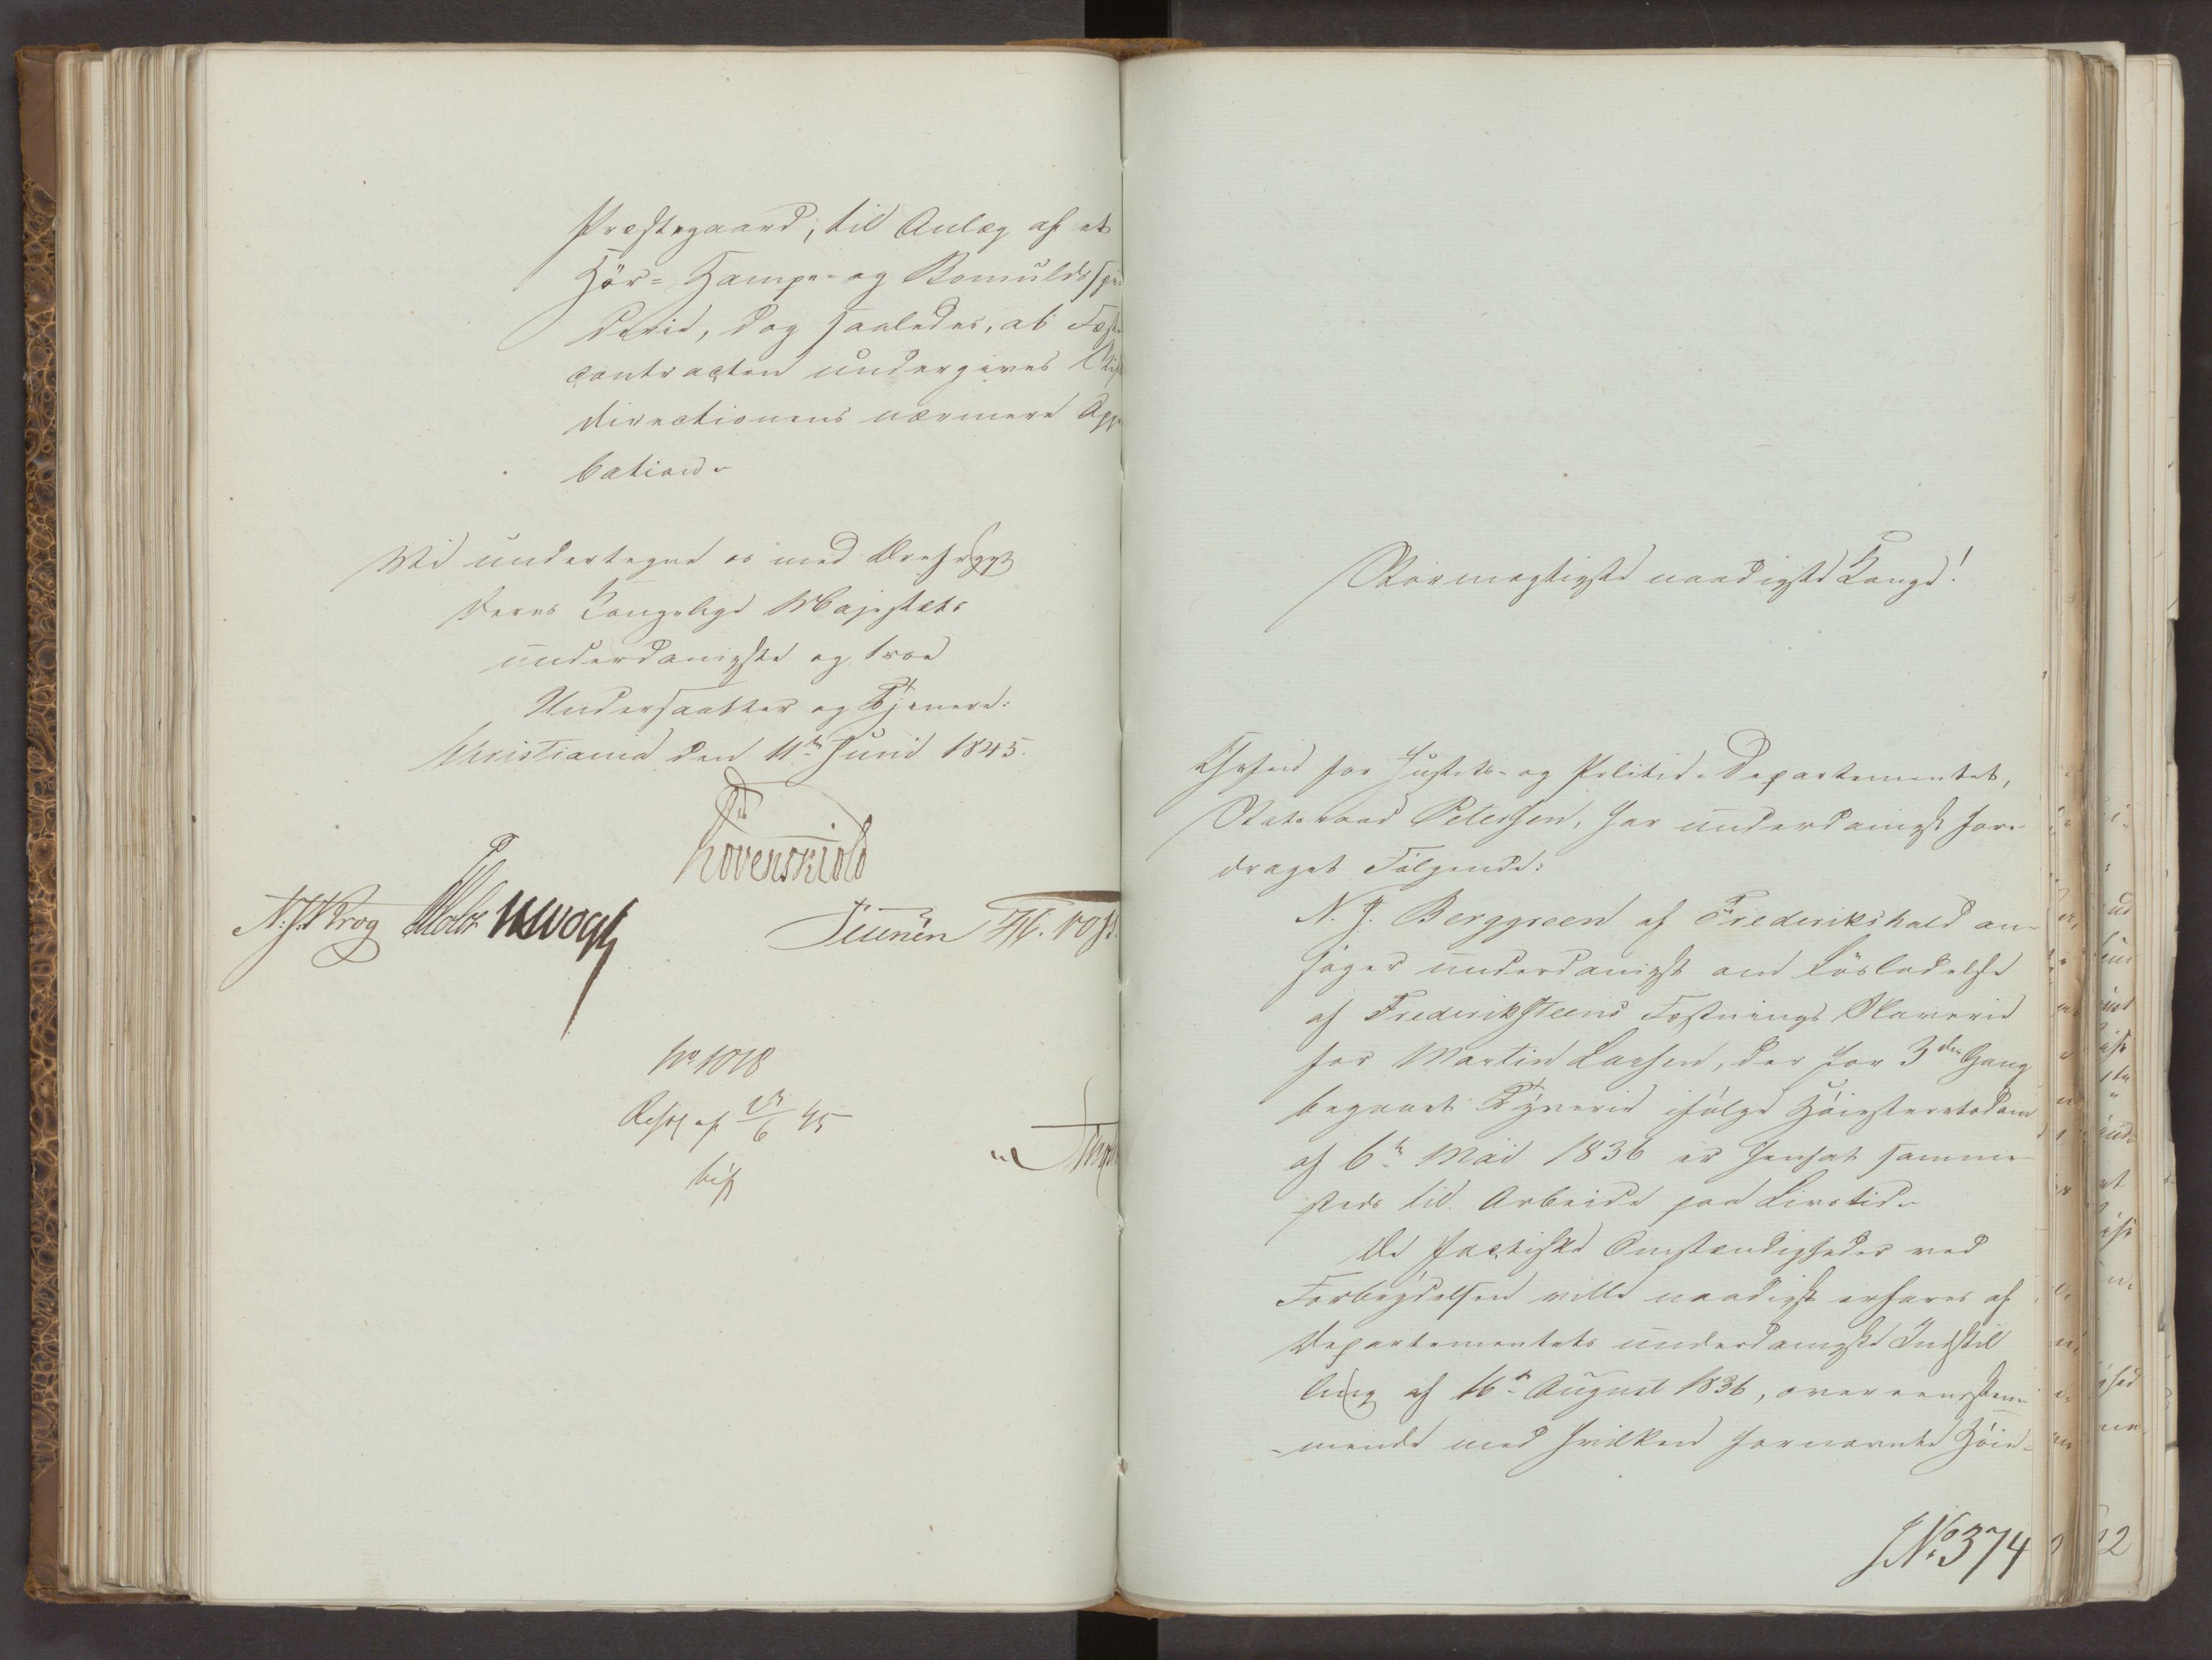 Præstegaard, til Anlæg af et
Hör- Hampe- og Bomuldsspin
derie, dog saaledes, at Fæste
contracten undergives Stifts
directionens nærmere Appro
bation.
Vi undertegne os med Ærefrygt
Deres Kongelige Majestæts
underdanigste og troe
Undersaatter og Tjenere:
Christiania den 11te Juni 1845.
Løvenskiold
N. J. Krog Vogt
No 1018
Resol af /6 45
Stormægtigste naadigste Konge!
Chefen for Justits- og Politie-Departementet,
Statsraad Petersen, har underdanigst fore-
draget Følgende:
N. J. Berggreen af Frederikshald an-
søger underdanigst om Løsladelse
af Frederiksteens Fæstnings Slaverie
for Martin Larsen, der for 3die Gang
begaaet Tyverie ifølge Høiesteretsdom
af 6te Mai 1836 er hensat samme-
steds til Arbeide paa Livstid.
De factiske Omstændigheder ved
Forbrydelsen ville naadigst erfares af
Departementets underdanigste Indstil
ling af 16de August 1836, overeensstem-
-mende med hvilken fornævnte Høie-
JNo 374